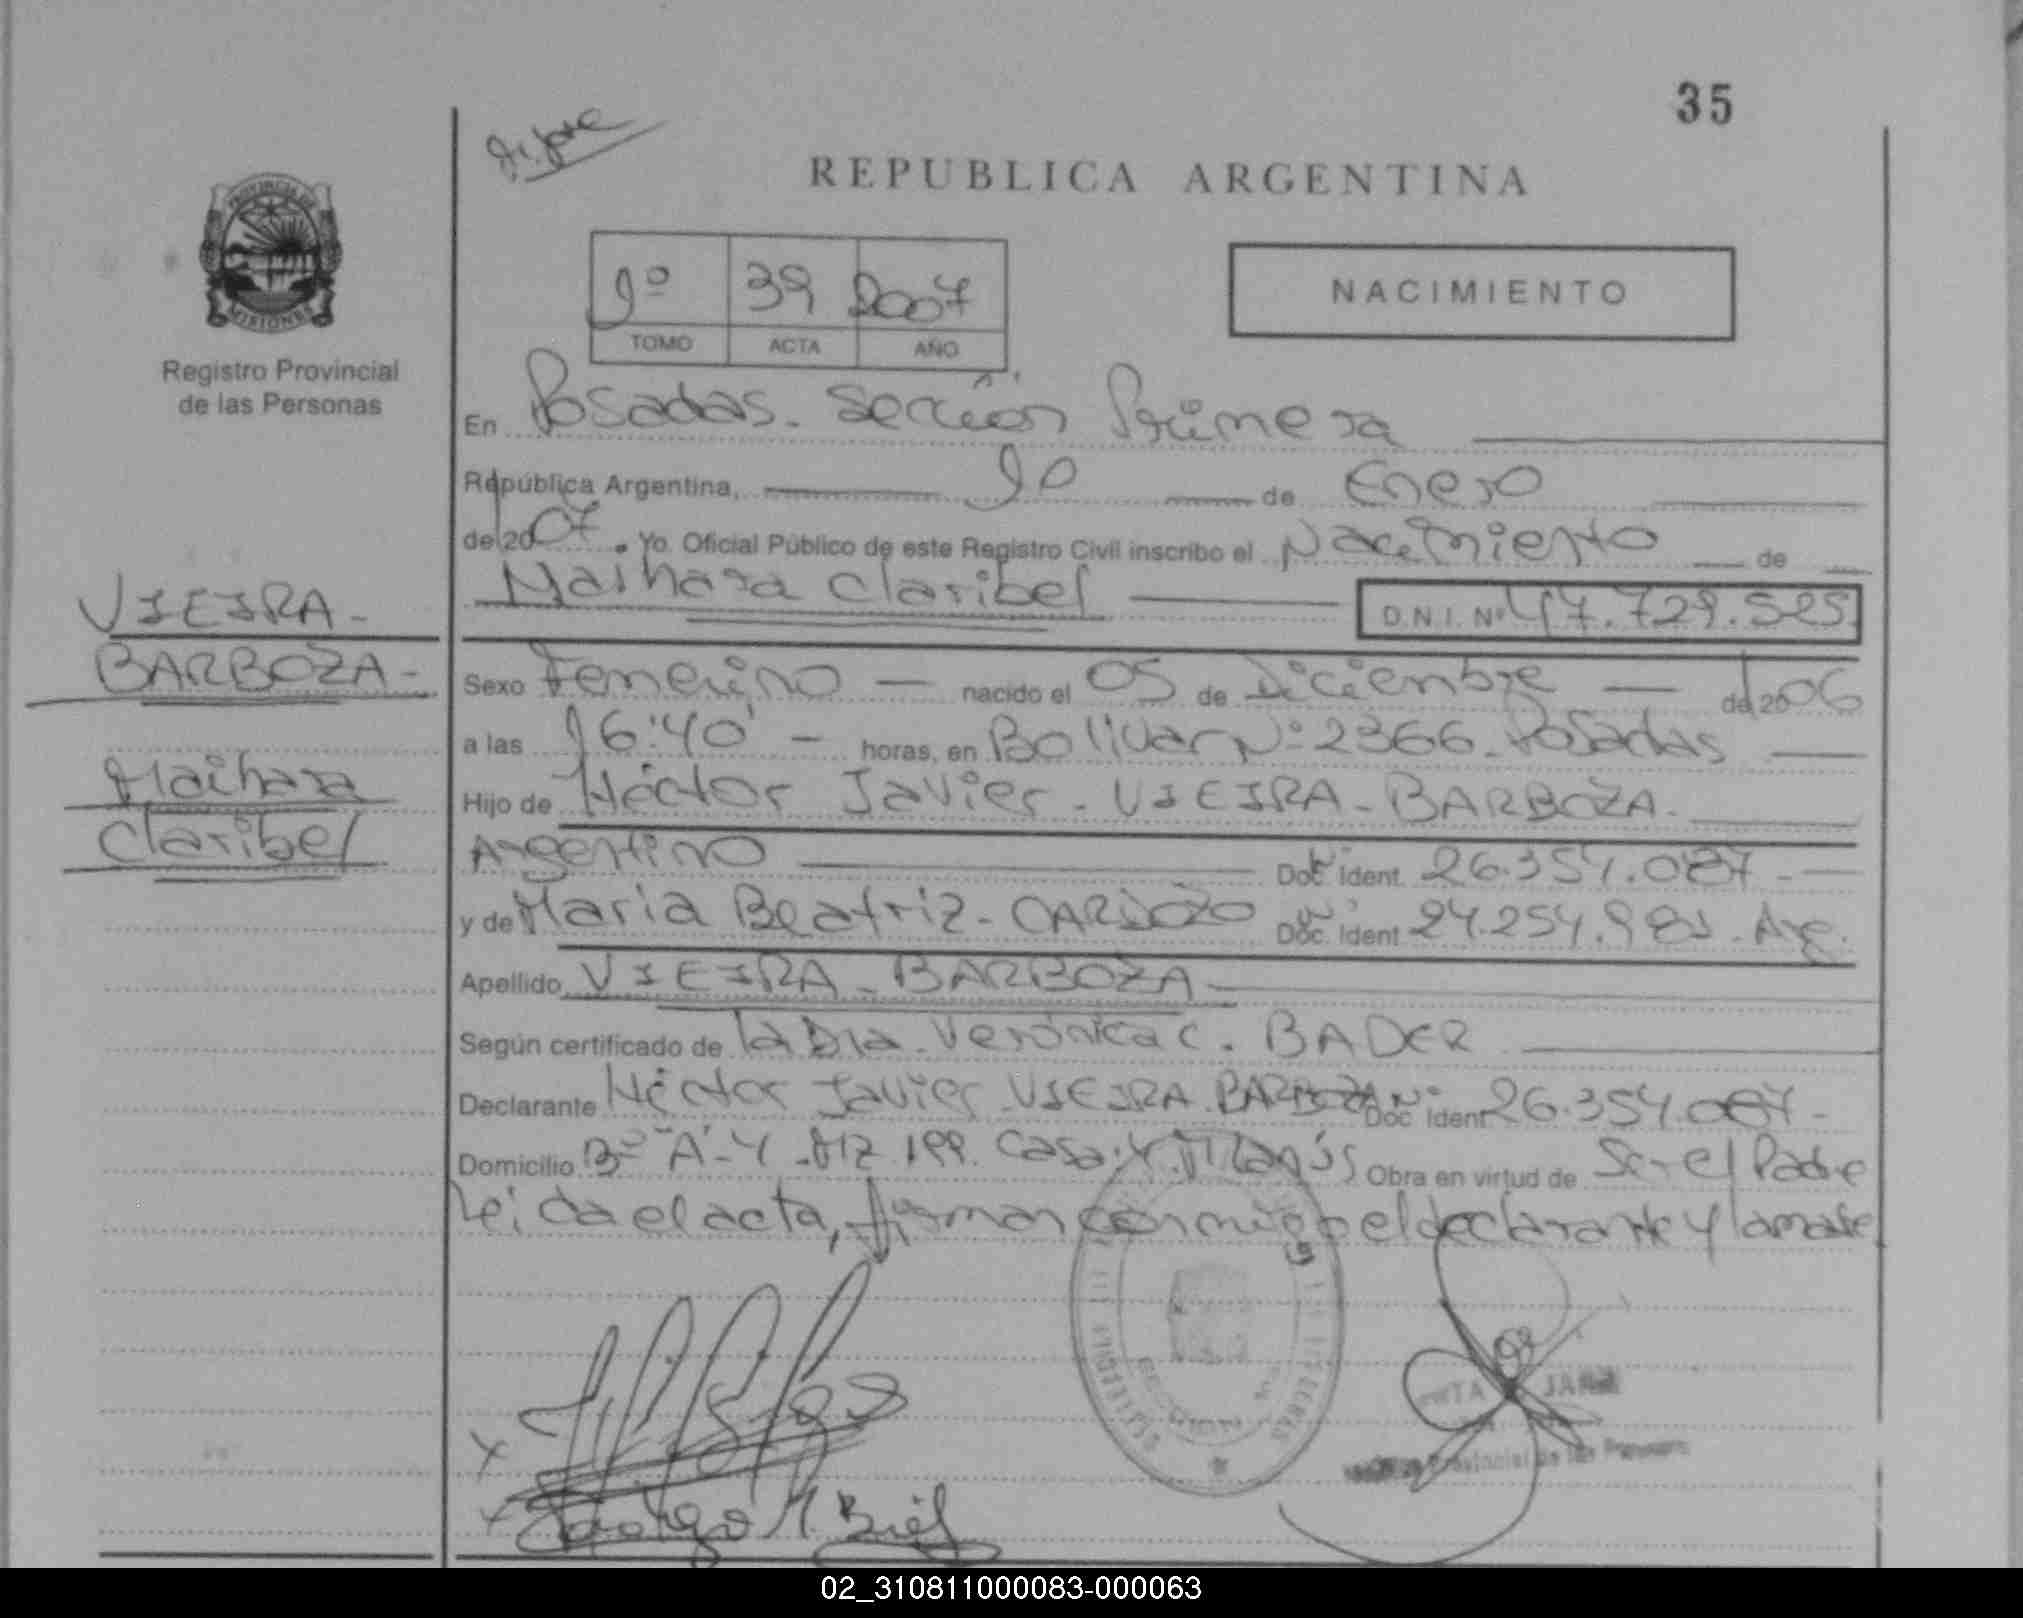 35
REPUBLICA ARGENTINA
PROVINCIA DE
MISIONES
Registro Provincial
de las Personas
1º 39 2007
TOMO ACTA AÑO
NACIMIENTO
En Posadas. Sección Primera
República Argentina, 10 de Enero
del 2007. Yo. Oficial Público de este Registro Civil inscribo el Nacimiento de
Maihara Claribel D.N.I. Nº 47.729.525
VIEIRA-
BARBOZA-
Maihara
Claribel
Sexo Femenino — nacido el 05 de Diciembre — del 2006
a las 16:40' — horas, en Bolivar Nº 2366. Posadas
Hijo de Héctor Javier - VIEIRA - BARBOZA -
Argentino Doc. Ident. 26.354.087 -
y de Maria Beatriz - CARDOZO Doc. Ident. 24.254.981 - Arg.
Apellido VIEIRA - BARBOZA -
Según certificado de la Dra. Verónica C. BADER
Declarante Héctor Javier VIEIRA BARBOZA Nº Doc Ident 26.354.087 -
Domicilio Bº "A-4 - Mz 199. Casa Obra en virtud de Ser el Padre
Leida el acta, firman conmigo el declarante y la madre
SECCION
Provincial de las Personas
02_310811000083-000063